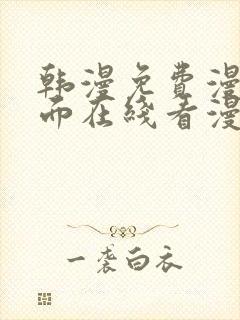 韩漫免费漫
而在线看漫
一袭白衣